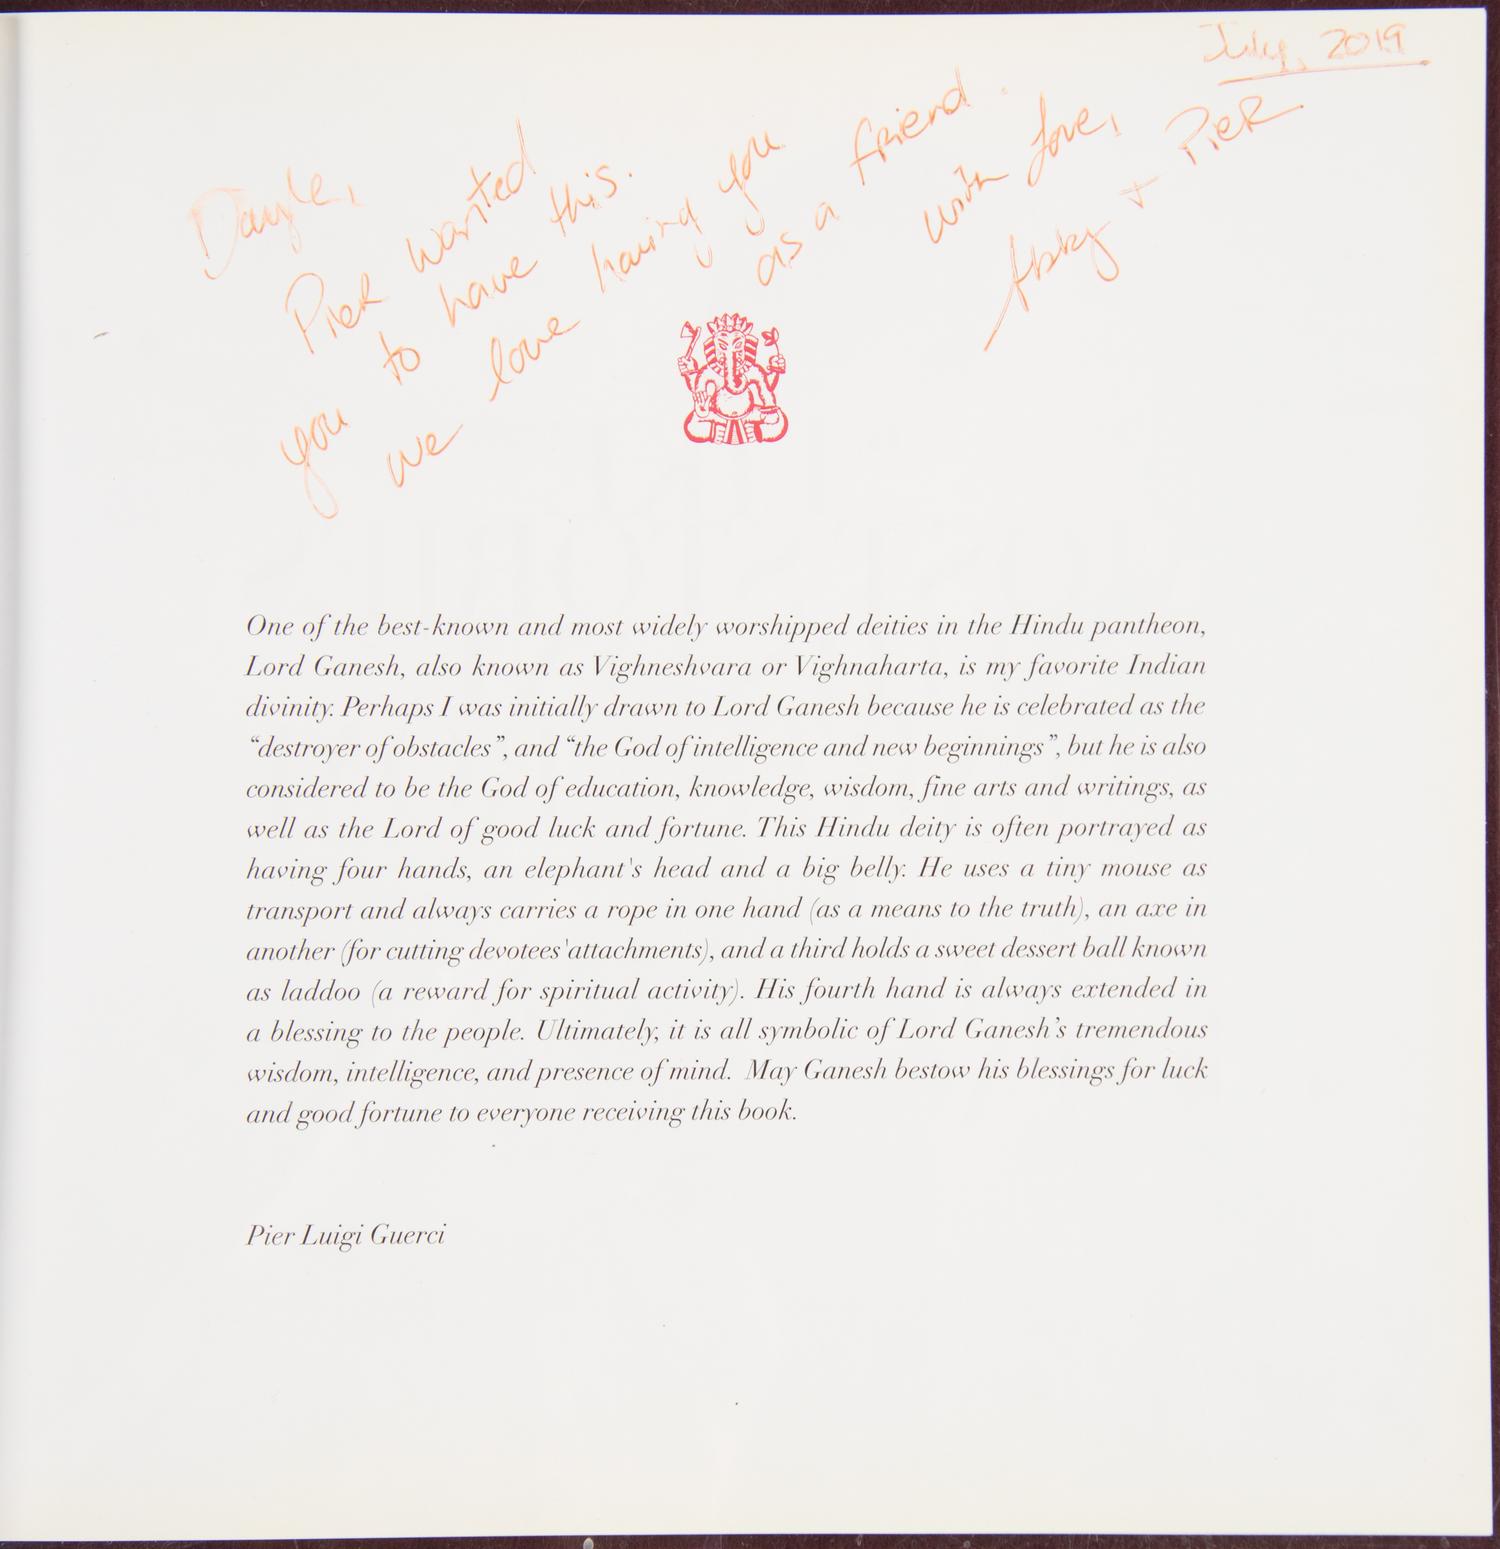 July, 2019
Dayle,
Pier wanted
you to have this.
we love having you
as a friend.
with love,
Abby + Pier
One of the best-known and most widely worshipped deities in the Hindu pantheon,
Lord Ganesh, also known as Vighneshvara or Vighnaharta, is my favorite Indian
divinity. Perhaps I was initially drawn to Lord Ganesh because he is celebrated as the
“destroyer of obstacles”, and “the God of intelligence and new beginnings”, but he is also
considered to be the God of education, knowledge, wisdom, fine arts and writings, as
well as the Lord of good luck and fortune. This Hindu deity is often portrayed as
having four hands, an elephant's head and a big belly. He uses a tiny mouse as
transport and always carries a rope in one hand (as a means to the truth), an axe in
another (for cutting devotees'attachments), and a third holds a sweet dessert ball known
as laddoo (a reward for spiritual activity). His fourth hand is always extended in
a blessing to the people. Ultimately, it is all symbolic of Lord Ganesh’s tremendous
wisdom, intelligence, and presence of mind. May Ganesh bestow his blessings for luck
and good fortune to everyone receiving this book.
Pier Luigi Guerci